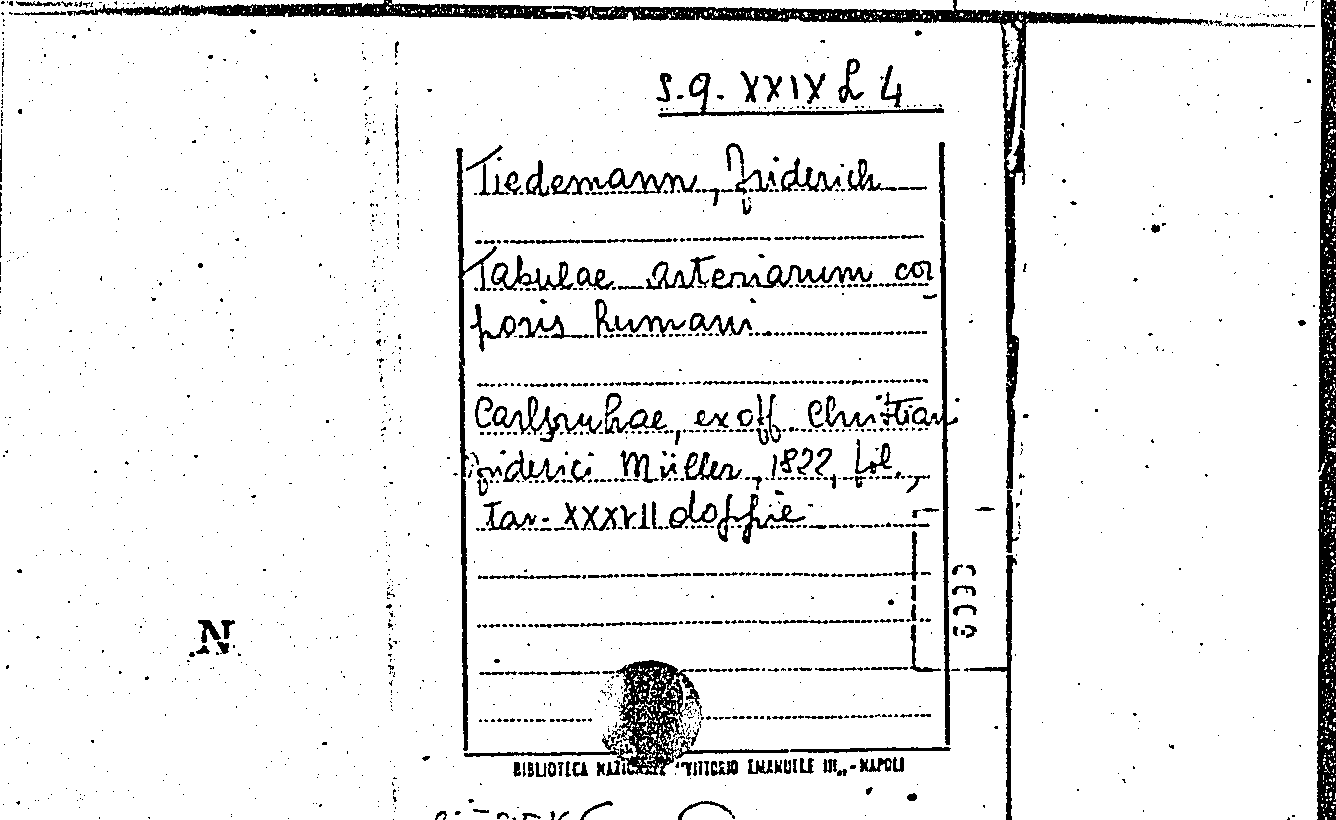 S.q. XXIX L 4
Tiedemann, Friderich
Tabulae arteriarum cor
poris humani
Carlsruhae, ex off. Christiani
Friderici Müller, 1822, fol.,
Tav. XXXVII doppie
N
BIBLIOTECA NAZIONALE "VITTORIO EMANUELE III" - NAPOLI